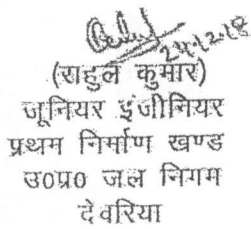 24.12.18
(राहुल कुमार)
जूनियर इंजीनियर
प्रथम निर्माण खण्ड
उ0प्र0 जल निगम
देवरिया